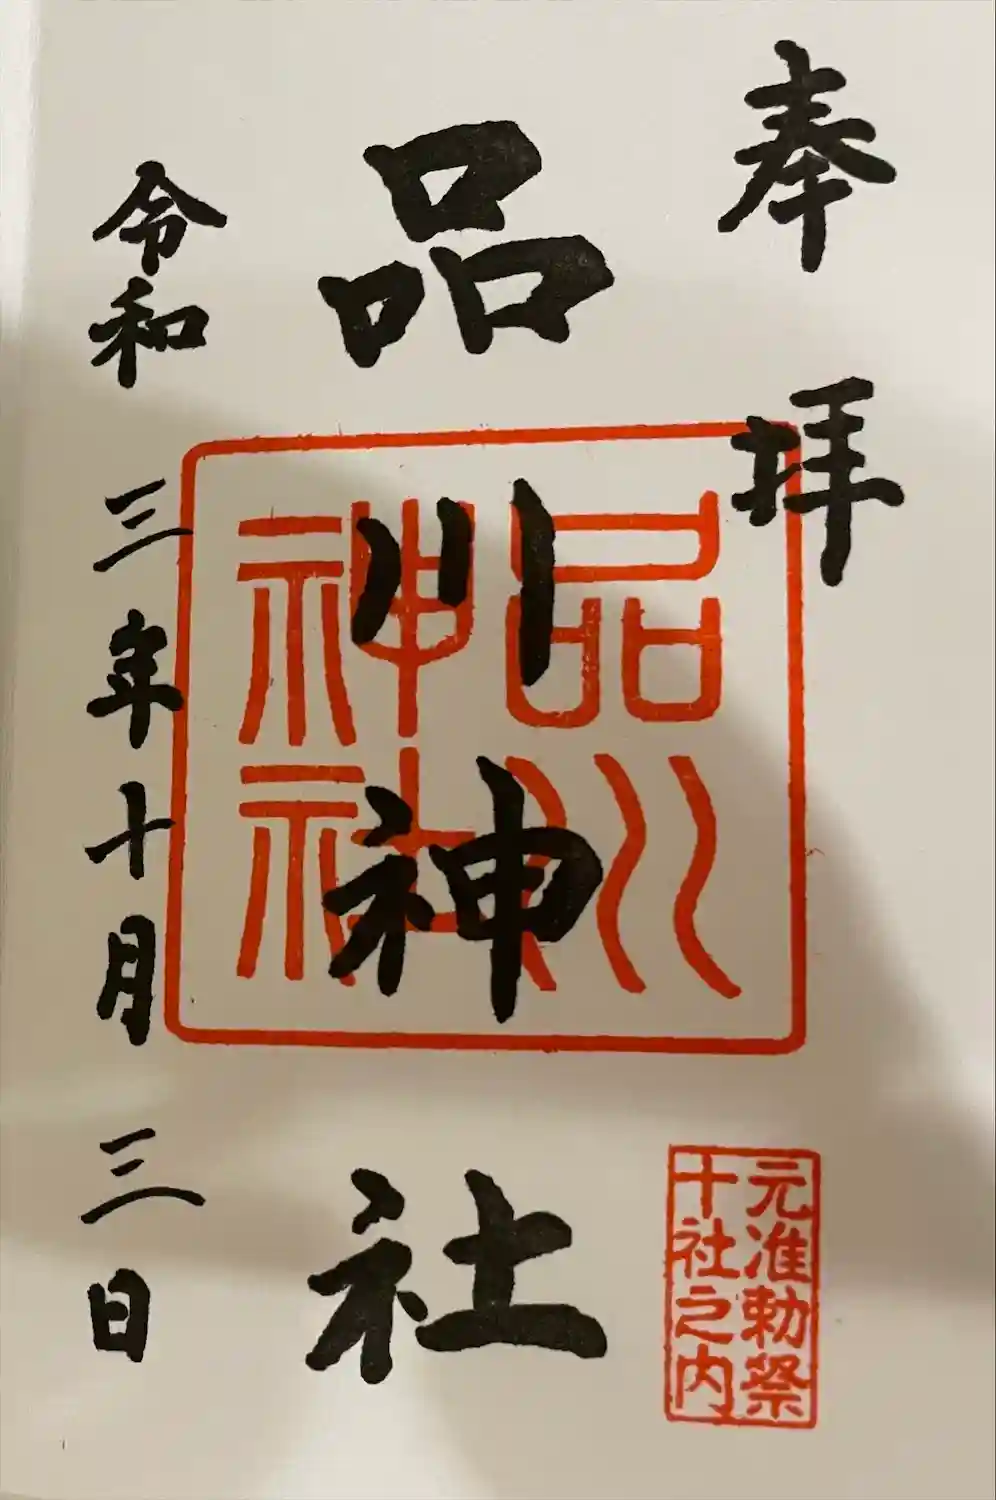 奉拝
品川神社
品川
神社
令和三年十月三日
元准勅祭
十社之内